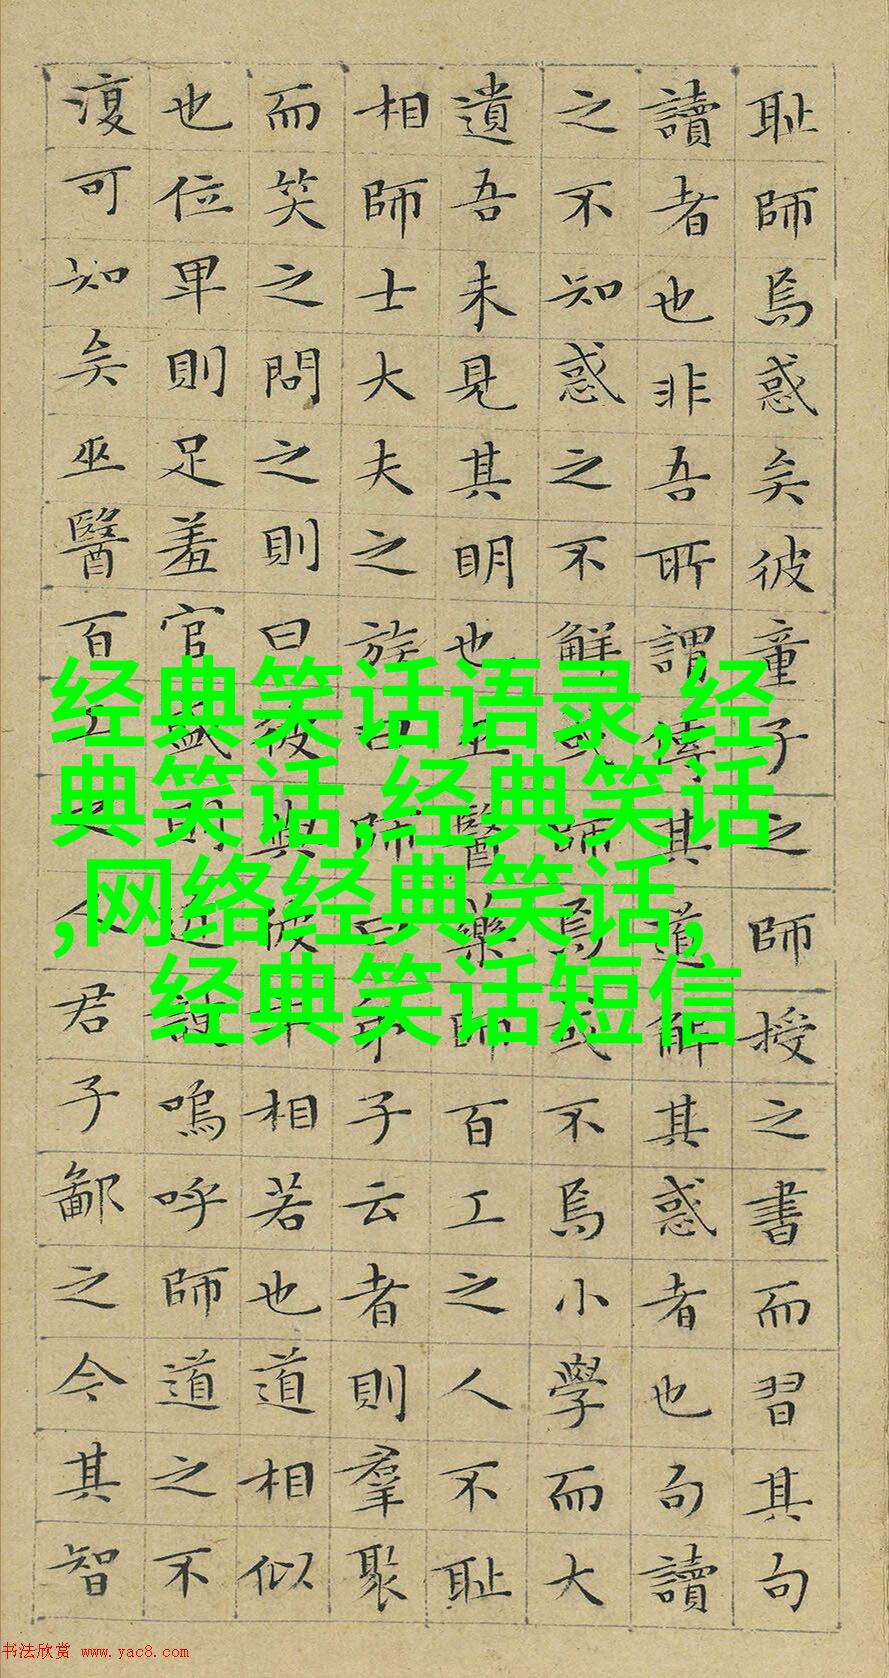 耻師焉惑矣彼童子之師授之書而習其句
讀者也非吾所謂傳其道解其惑者也句讀
之不知惑之不觧或師焉或不焉小學而大
遺吾未見其明也巫醫藥師百工之人不耻
相師士大夫之族曰師曰弟子云者則羣聚
而笑之問之則曰彼與彼年相若也道相似
也位卑則足羞官盛則近諛嗚呼師道之不
復可知矣巫醫百工之人君子鄙之今其智
经典笑话语录,经
典笑话,经典笑话
,网络经典笑话,
经典笑话短信
书法欣赏 www.yac8.com